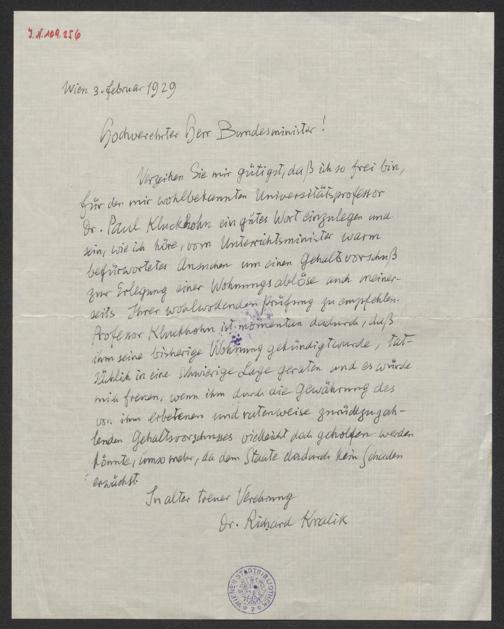 J.N. 109.256
Wien 3. Februar 1929
Hochverehrter Herr Bundesminister!
Verzeihen Sie mir gütigst, daß ich so frei bin,
für den mir wohlbekannten Universitätsprofessor
Dr. Paul Kluckhohn ein gutes Wort einzulegen und
sein, wie ich höre, vom Unterrichtsminister warm
befürwortetes Ansuchen um einen Gehaltsvorschuß
zur Erlegung einer Wohnungsablöse auch meiner-
seits Ihrer wohlwollenden Prüfung zu empfehlen.
Professor Kluckhohn ist momentan dadurch, daß
ihm seine bisherige Wohnung gekündigt wurde, tat-
sächlich in eine schwierige Lage geraten und es würde
mich freuen, wenn ihm durch die Gewährung des
von ihm erbetenen und ratenweise zurückzuzah-
lenden Gehaltsvorschusses vielleicht doch geholfen werden
könnte, umso mehr, da dem Staate dadurch kein Schaden
erwächst.
In alter treuer Verehrung
Dr. Richard Kralik
WIENER STADTBIBLIOTHEK